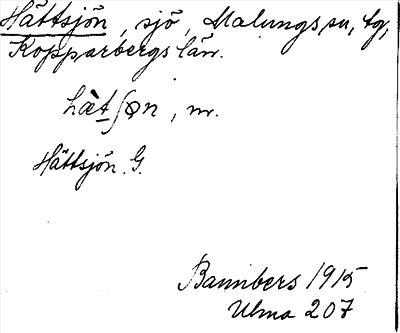 Hättsjön, sjö, Malungs sn, tg,
Kopparbergs län.
hæ̀tʃøn, nr.
Hättsjön G.
Bannbers 1915
Ulma 207